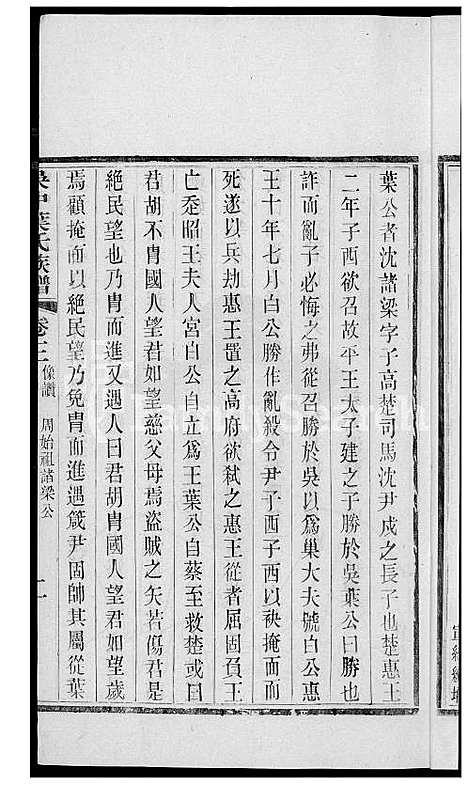 葉公者沈諸梁字子高楚司馬沈尹戍之長子也楚惠王
二年子西欲召故平王太子建之子勝於吳葉公曰勝也
詐而亂子必悔之弗從召勝於吳以爲巢大夫號白公惠
王十年七月白公勝作亂殺令尹子西子西以袂掩面而
死遂以兵劫惠王置之高府欲弒之惠王從者屈固負王
亡走昭王夫人宮白公自立爲王葉公自蔡至救楚或曰
君胡不冑國人望君如望慈父母焉盜賊之矢若傷君是
絶民望也乃冑而進又遇人曰君胡冑國人望君如望歲
焉顧掩面以絶民望乃免冑而進遇箴尹固帥其屬從葉
吳中葉氏族譜 卷三 像讚 周始祖諸梁公